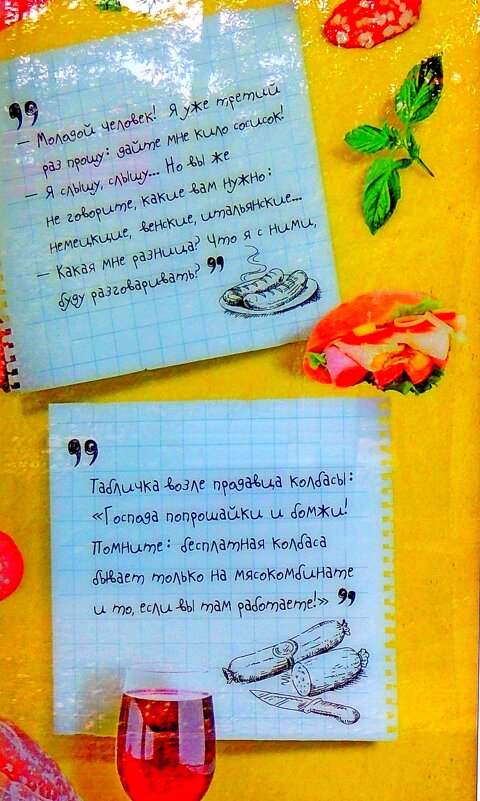 ❞
— Молодой человек! Я уже третий
раз прошу: дайте мне кило сосисок!
— Я слышу, слышу... Но вы же
не говорите, какие вам нужно:
немецкие, венские, итальянские...
— Какая мне разница? Что я с ними,
буду разговаривать? ❞
❞
Табличка возле продавца колбасы:
«Господа попрошайки и бомжи!
Помните: бесплатная колбаса
бывает только на мясокомбинате
и то, если вы там работаете!» ❞